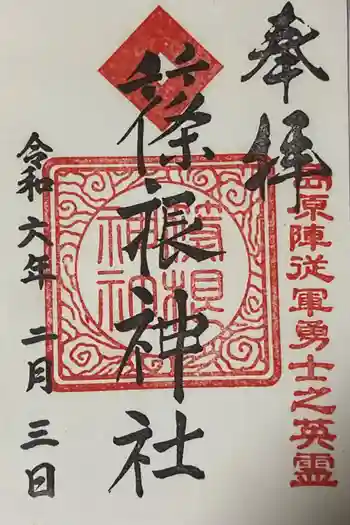 奉拝
田原陣従軍勇士之英霊
篠根神社
令和六年二月三日